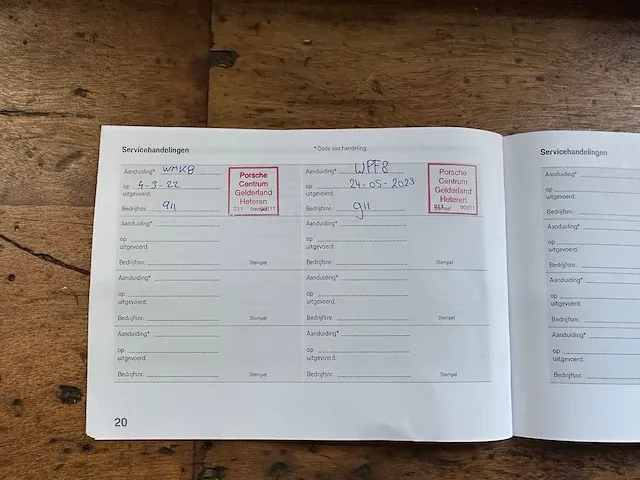 Servicehandelingen
* Code van handeling
Aanduiding* WMK8
op 4-3-22
uitgevoerd.
Bedrijfsnr. 911
Porsche
Centrum
Gelderland
Heteren
Stempel
Aanduiding* WPF8
op 24-05-2023
uitgevoerd.
Bedrijfsnr. 911
Porsche
Centrum
Gelderland
Heteren
Aanduiding*
op
uitgevoerd.
Bedrijfsnr. Stempel
Aanduiding*
op
uitgevoerd.
Bedrijfsnr. Stempel
Aanduiding*
op
uitgevoerd.
Bedrijfsnr. Stempel
Aanduiding*
op
uitgevoerd.
Bedrijfsnr. Stempel
Aanduiding*
op
uitgevoerd.
Bedrijfsnr. Stempel
Aanduiding*
op
uitgevoerd.
Bedrijfsnr. Stempel
20
Servicehandelingen
Aanduiding*
op
uitgevoerd.
Bedrijfsnr.
Aanduiding*
op
uitgevoerd.
Bedrijfsnr.
Aanduiding*
op
uitgevoerd.
Bedrijfsnr.
Aanduiding*
op
uitgevoerd.
Bedrijfsnr.